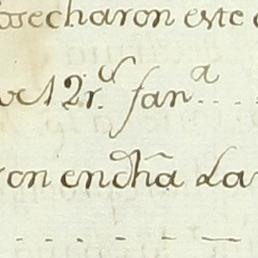 osecharon este
12 r.s fan.a
on en dha La